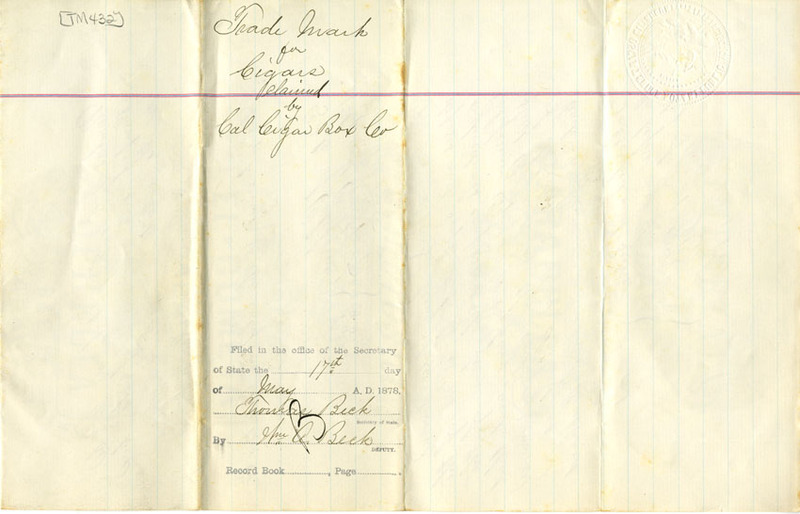 [TM432]
Trade Mark
for
Cigars
claimed
by
Cal Cigar Box Co
Filed in the office of the Secretary
of State the 17th day
of May A. D. 1878.
Thomas Beck
Secretary of State.
By Wm A. Beck
DEPUTY.
Record Book , Page .